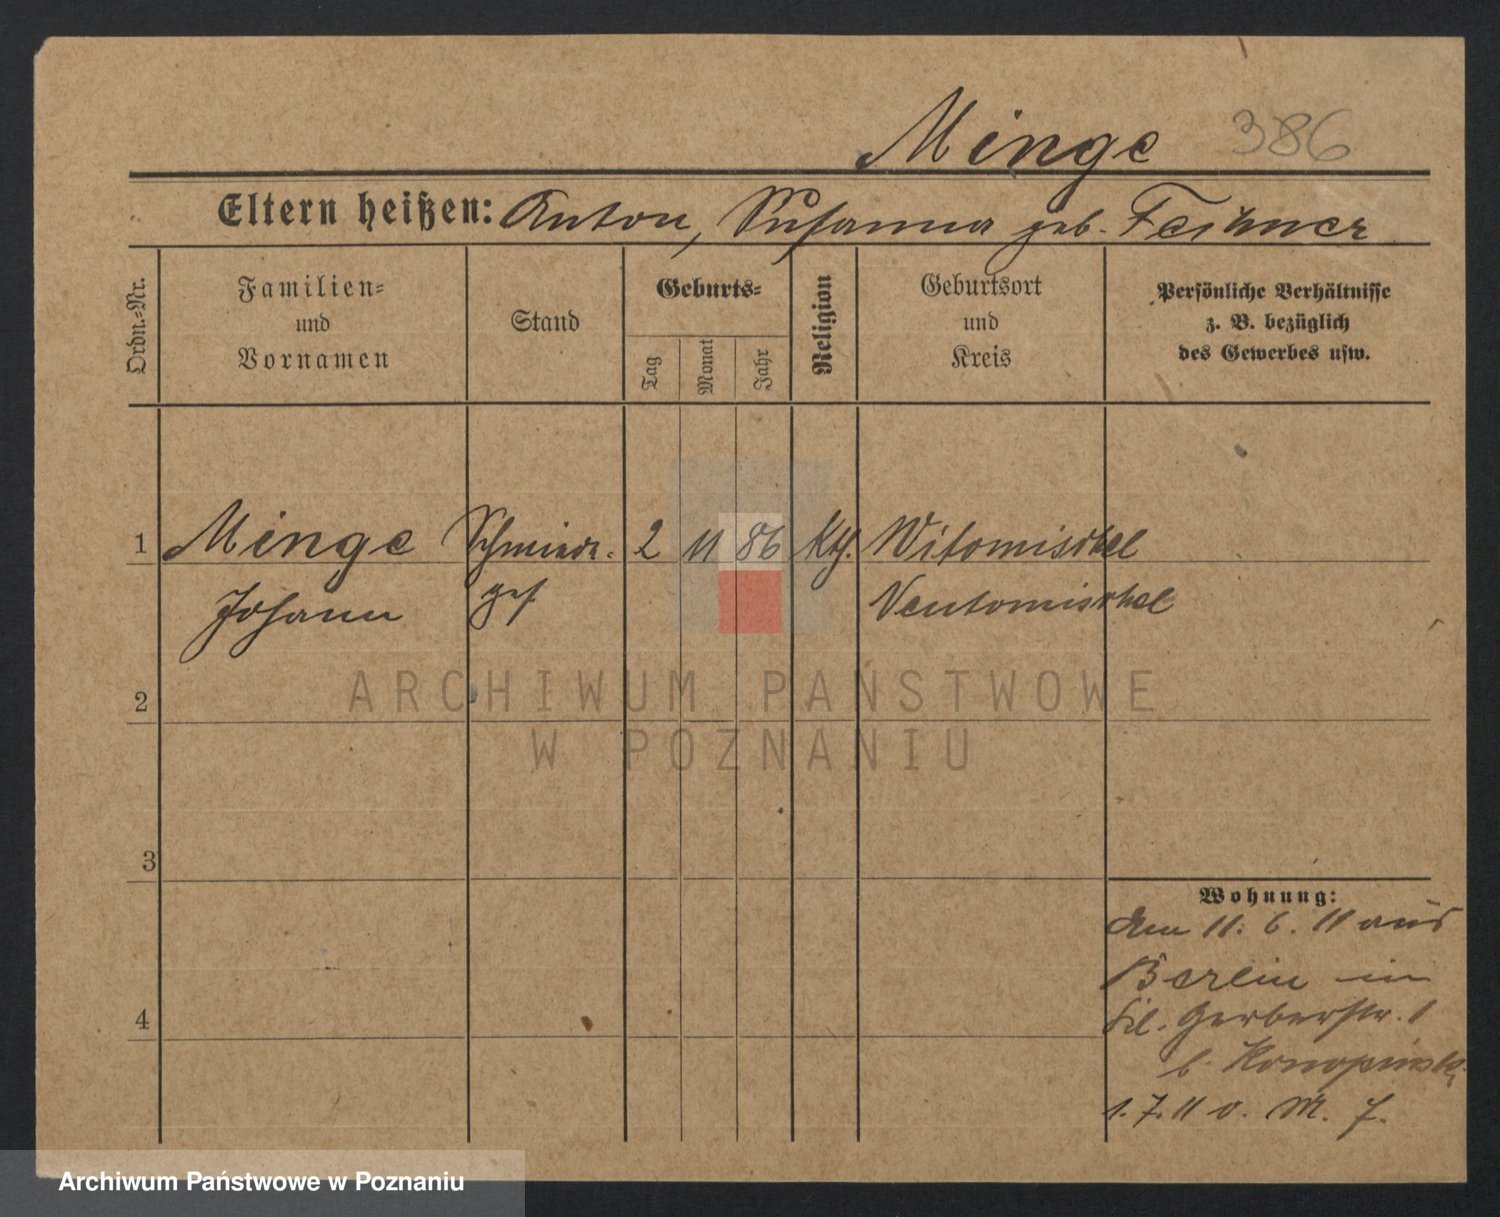 Minge 386
Eltern heißen: Anton, Susanna geb.
Ordn.-Nr.
Familien-
und
Vornamen
Stand
Geburts-
Tag
Monat
Jahr
Religion
Geburtsort
und
Kreis
Persönliche Verhältnisse
z. B. bezüglich
des Gewerbes usw.
1 Minge Schmiede- 2 11 86 Kth. Witomischel
Johann ges. Neutomischel
2
3
4
Wohnung:
Am 11. 6. 11 aus
Berlin in
Gerberstr. 1
b. Konopinski
1. 7. 11 v. M. 7.
ARCHIWUM PAŃSTWOWE
W POZNANIU
Archiwum Państwowe w Poznaniu